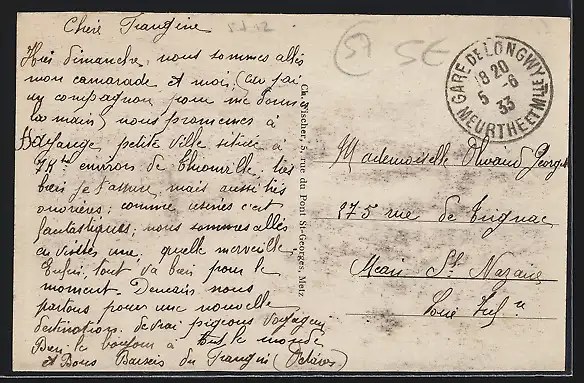 Chère Frangine
Hier dimanche, nous sommes allés
mon camarade et moi, (car j'ai
un compagnon pour me donner
la main) nous promener à
Hayange, petite ville située à
7 K. environ de Thionville, très
bien je t'assure, mais aussi très
ouvrières; comme usines c'est
fantastiques; nous sommes allés
en visiter une, quelle merveille.
Enfin, tout va bien pour le
moment. Demain nous
partons pour une nouvelle
destination. de vrai pigeons voyageurs
Bien le bonjour à tout le monde
et Bons Baisers du Frangin
Ch. Wischer, 5, rue du Pont St-Georges, Metz
57
GARE DE LONGWY
18 20
5 -6
33
MEURTHE ET MLLE
Mademoiselle
175 rue de Trignac
Méan St Nazaire
Loire Infre